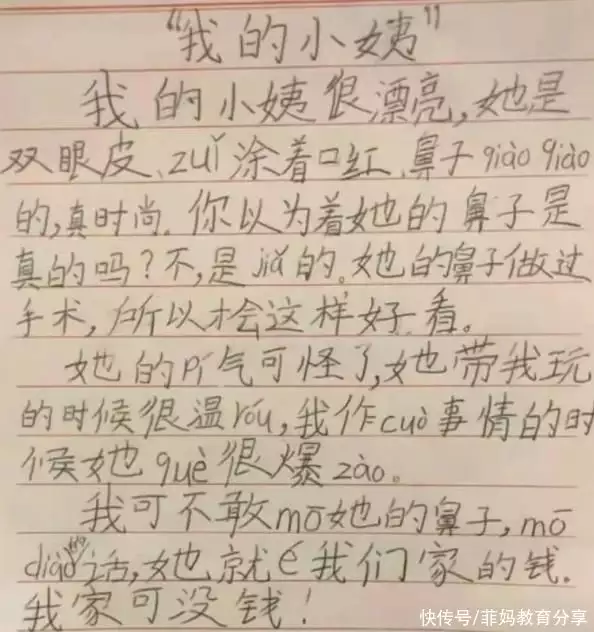 “我的小姨”
我的小姨很漂亮,她是
双眼皮、zuǐ涂着口红、鼻子qiào qiào
的,真时尚。你以为着她的鼻子是
真的吗?不,是jiǎ的。她的鼻子做过
手术,所以才会这样好看。
她的pí气可怪了,她带我玩
的时候很温róu,我作cuò事情的时
候她què很爆zào。
我可不敢mō她的鼻子,mō
diào的话,她就é我们家的钱.
我家可没钱!
快传号/菲妈教育分享